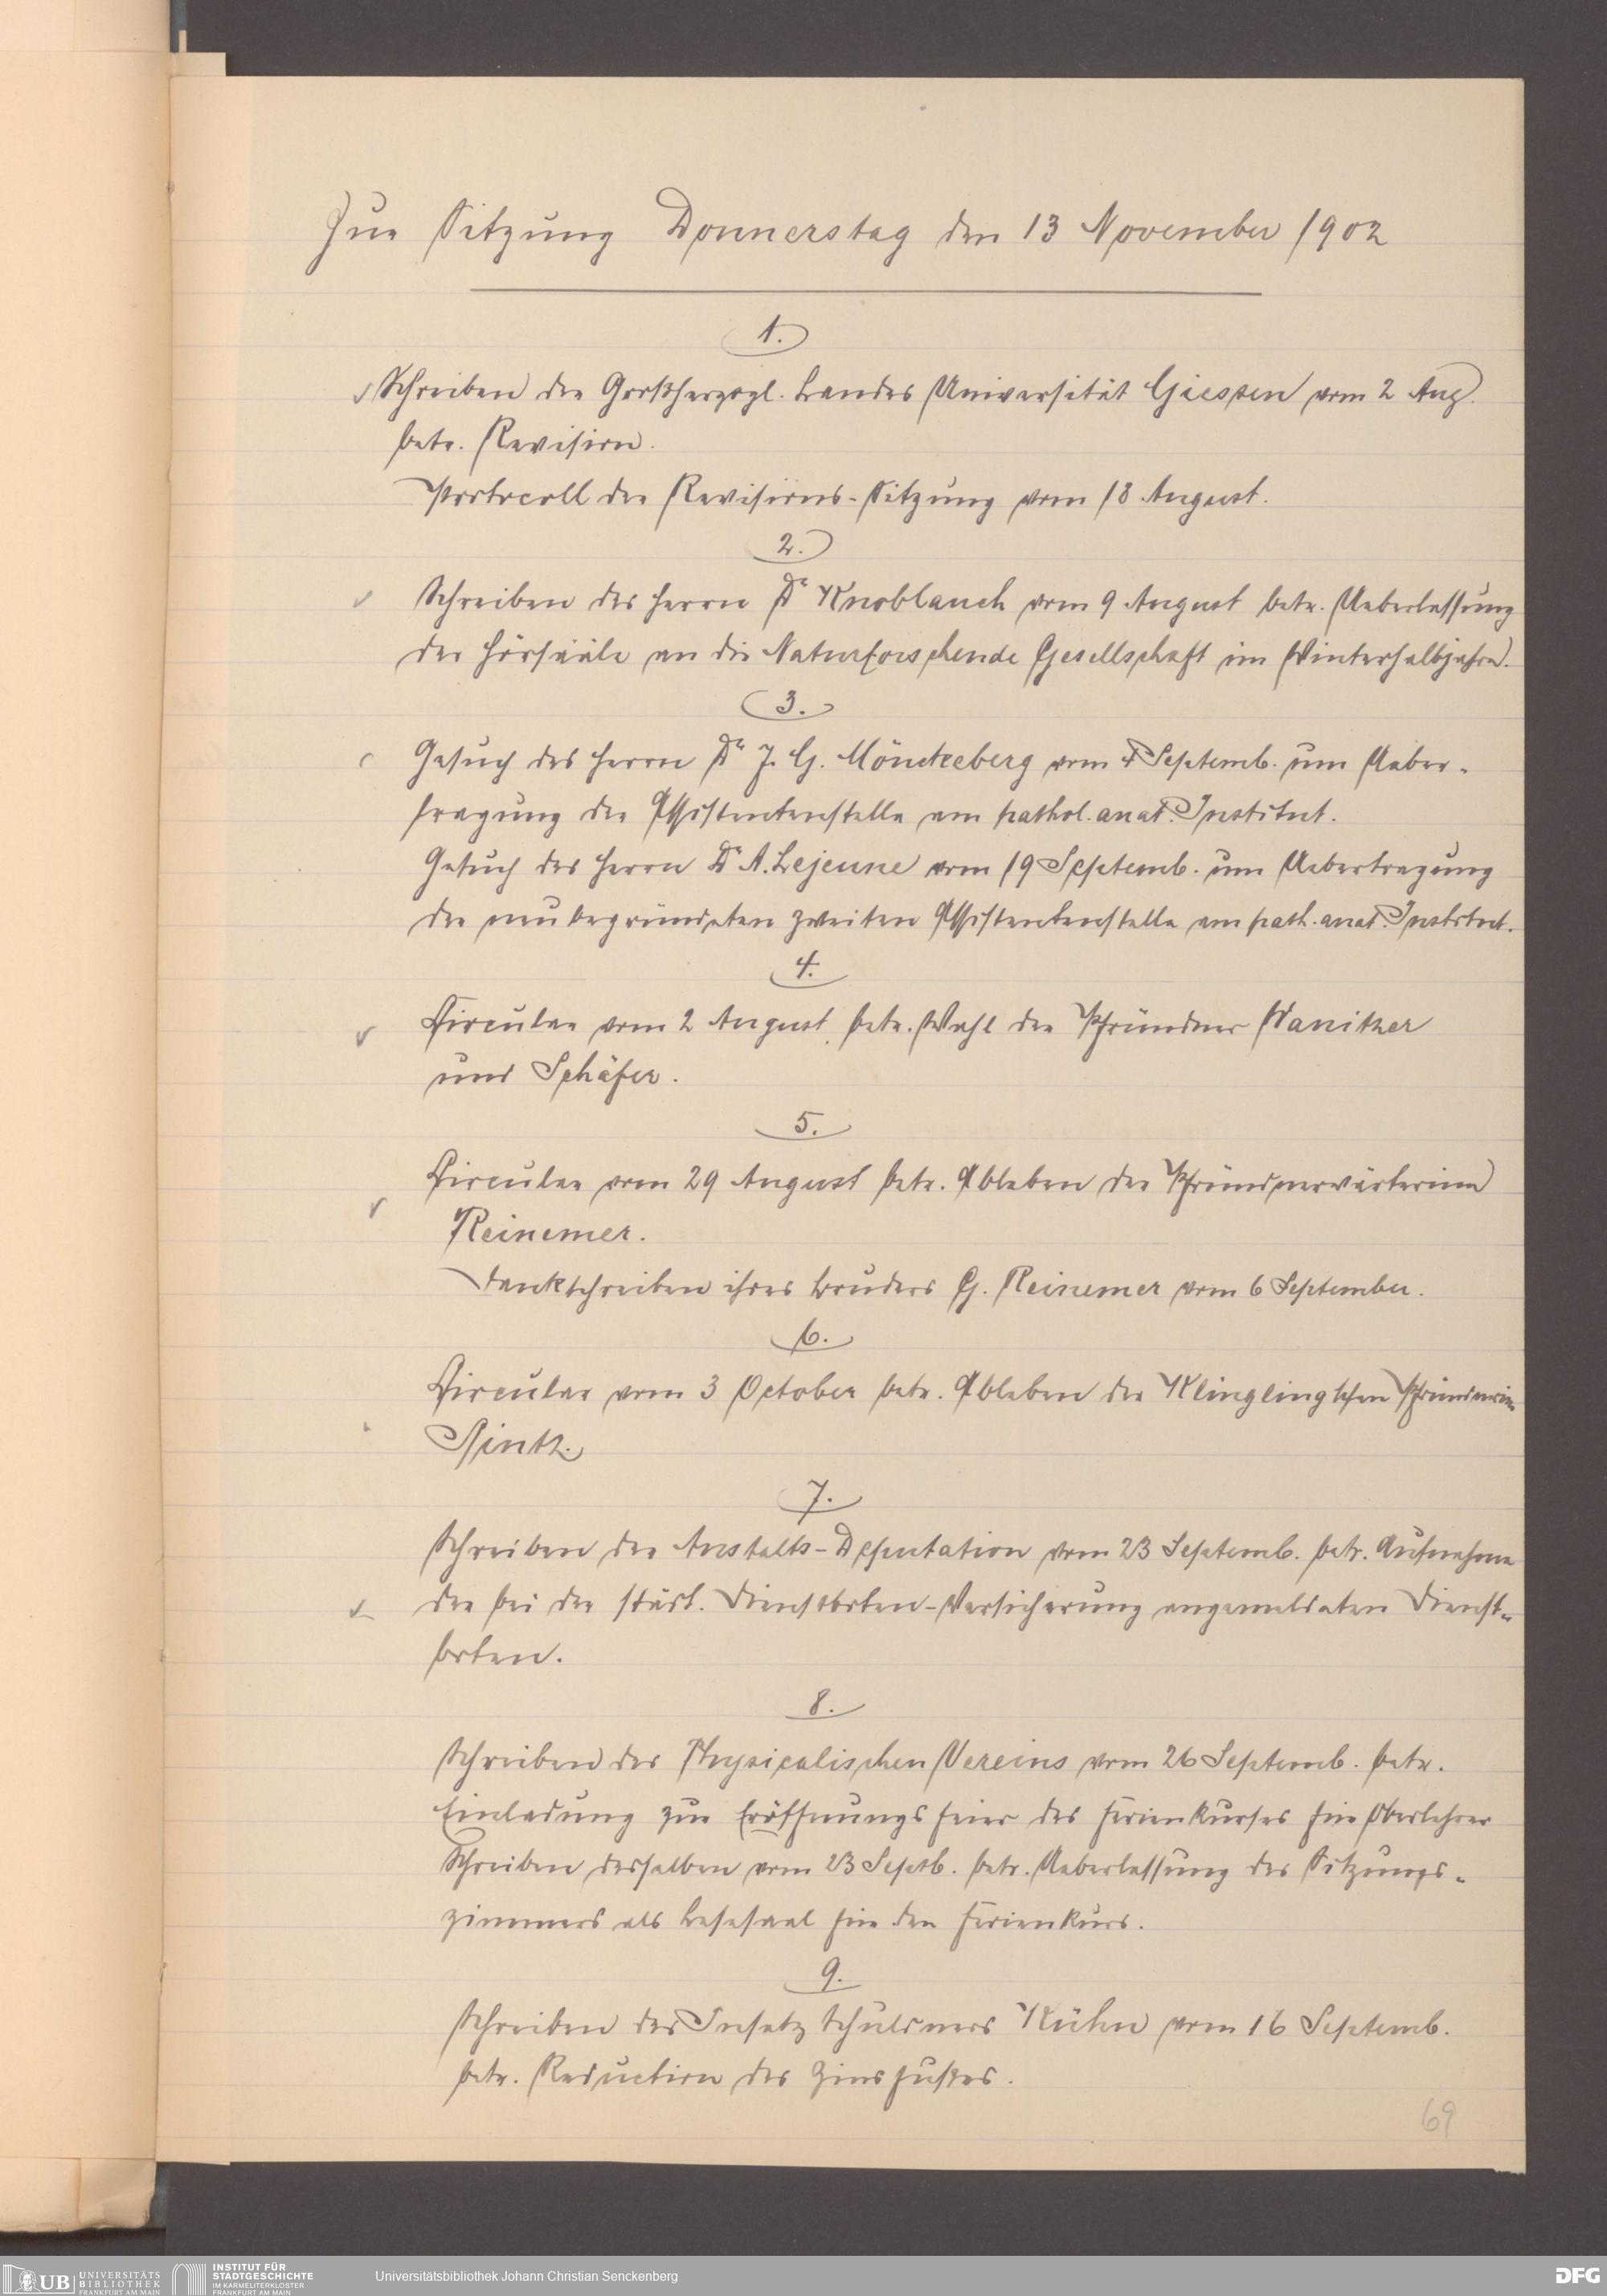 Zur Sitzung Donnerstag den 13 November 1902
1.
Schreiben der Großherzogl. Landes Universität Giessen vom 2 Aug.
betr. Revision.
Protocoll der Revisions-Sitzung vom 18 August.
2.
Schreiben des Herrn Dr Knoblauch vom 9 August betr. Ueberlassung
der Hörsääle an die Naturforschende Gesellschaft im Winterhalbjahre.
3.
Gesuch des Herrn Dr J. G. Mönckeberg vom Septemb. um Ueber-
tragung der Assistentenstelle am pathol. anat. Institut.
Gesuch des Herrn Dr A. Lejeune vom 19 Septemb. um Uebertragung
der neu begründeten zweiten Assistentenstelle am path. anat. Institut.
4.
Circular vom 2 August betr. Wahl der Pfründner Wanitzer
und Schäfer.
5.
Circular vom 29 August betr. Ableben der Pfründnerwärterinn
Reinemer.
Dankschreiben ihres Bruders G. Reinemer vom 6 September.
6.
Circular vom 3 October betr. Ableben der Klingling'schen Pfründnerin
7.
Schreiben der Anstalts-Deputation vom 23 Septemb. betr. Aufnahme
der bei der städt. Dienstboten-Versicherung angemeldeten Dienst-
boten.
8.
Schreiben des Physicalischen Vereins vom 26 Septemb. betr.
Einladung zur Eröffnungsfeier des Ferienkurses für Oberlehrer
Schreiben desselben vom 23 Septb. betr. Ueberlassung des Sitzungs-
zimmers als Lesesaal für den Ferienkurs.
9.
Schreiben des Insatzschuldners Kühn vom 16 Septemb.
betr. Reduction des Zinsfußes.
69
UB UNIVERSITÄTS
BIBLIOTHEK
FRANKFURT AM MAIN
INSTITUT FÜR
STADTGESCHICHTE
IM KARMELITERKLOSTER
FRANKFURT AM MAIN
Universitätsbibliothek Johann Christian Senckenberg
DFG